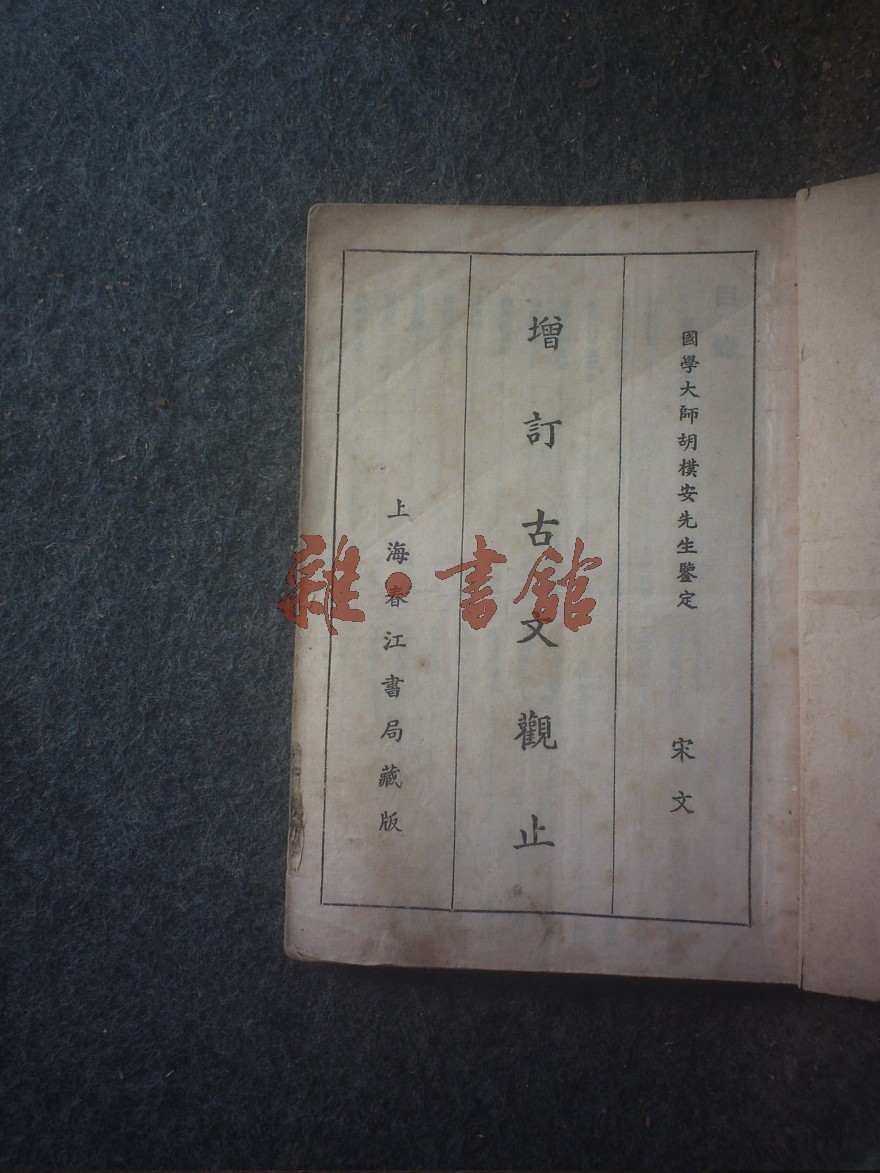 國學大師胡樸安先生鑒定
宋文
增訂古文觀止
上海春江書局藏版
雜·書館